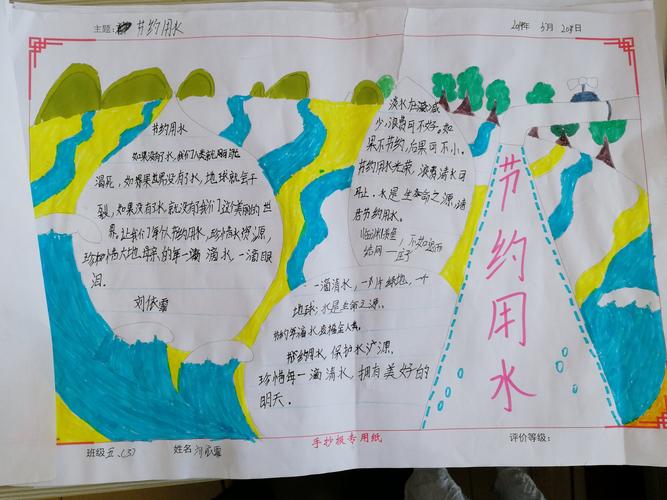 主题: 节约用水
2019年 5月 20日
节约用水
如果没有了水,我们人类就
渴死,如果没有了水,地球就会干
裂,如果没有了水,就没有了我们这美丽的世
界,让我们节约用水,珍惜水资源,
珍惜大地母亲的每一滴滴水,一滴眼
泪。
刘依霏
淡水在减
少,浪费可不好。如
果不节约,后果可不小。
节约用水光荣,浪费清水可
耻。水是生命之源,请
君节约用水。
临渊羡鱼,不如退而
结网
一滴清水,一片绿地,一个
地球;水是生命之源。
节约用水,保护水源。
珍惜每一滴清水,拥有美好的
明天.
节约用水
手抄报专用纸
班级 五.(3) 姓名 刘依霏 评价等级: